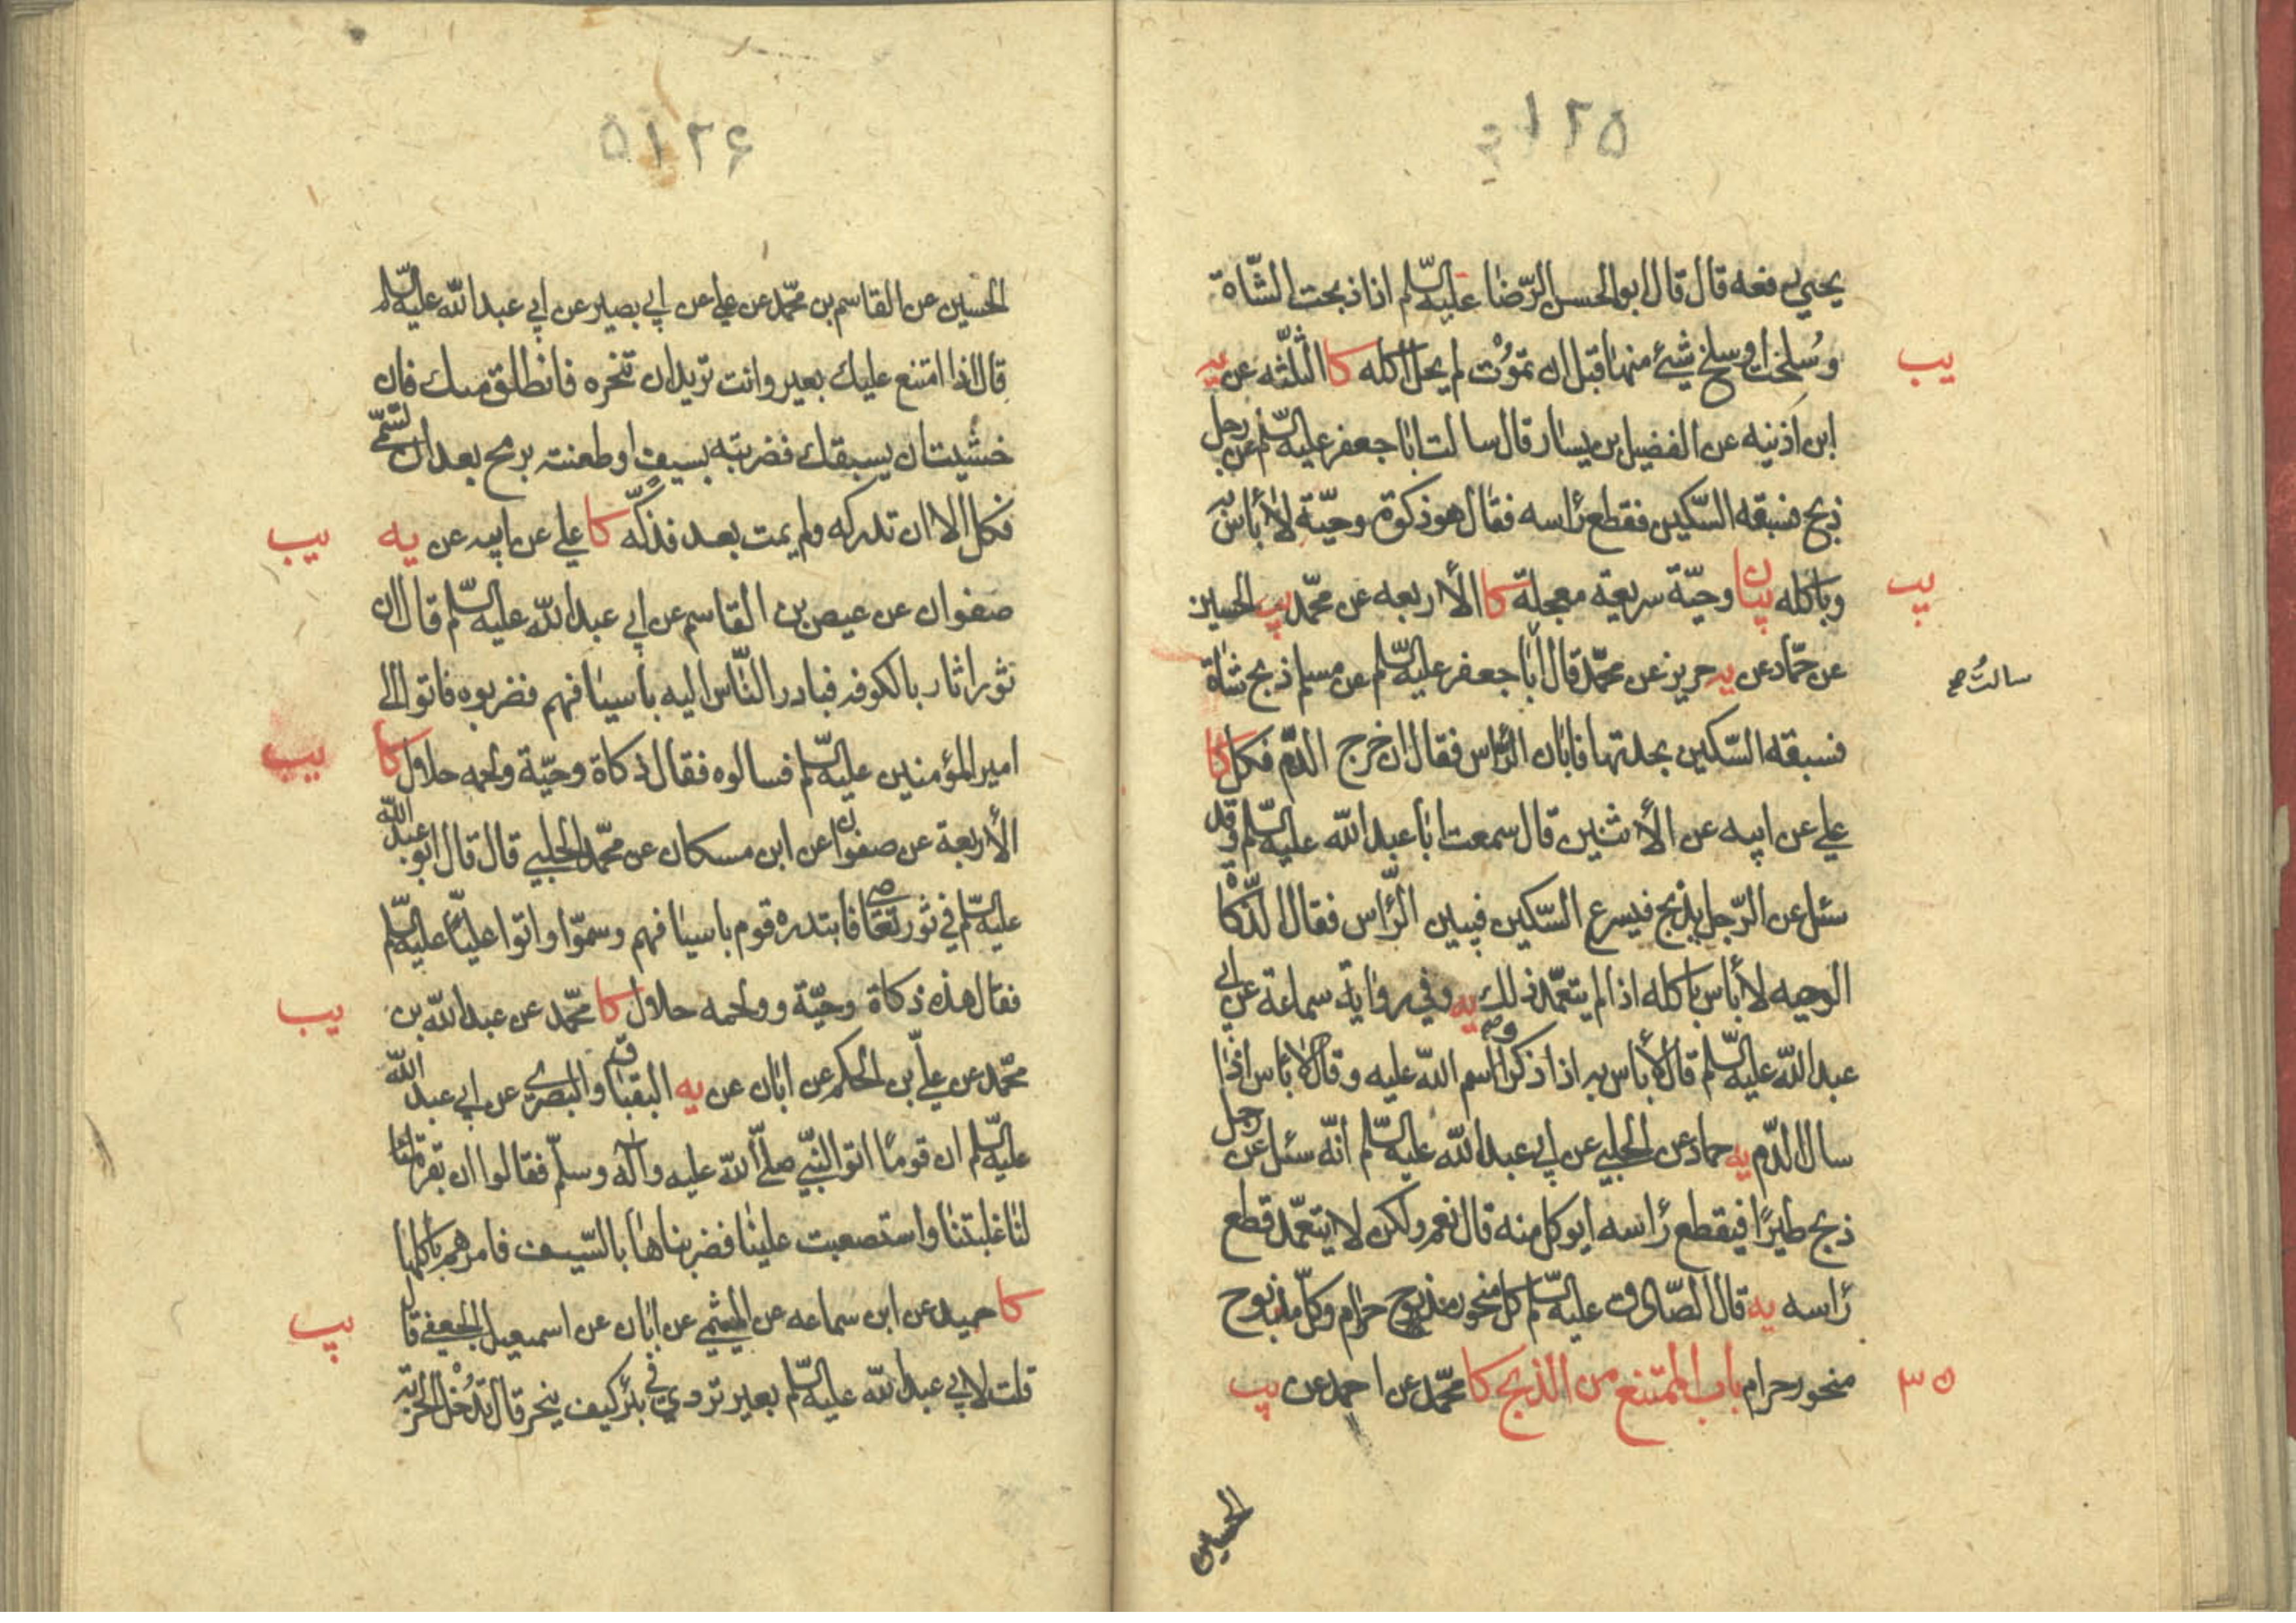 ۵۱۲۵
يحيى رفعه قال قال ابو الحسن الرّضا عليه السّلم اذا ذبحت الشّاة
وسُلخت او سلخ شيئ منها قبل ان تموُت لم يحلّ اكله كا الثلثه عن يه
يب
ابن اذينه عن الفضيل بن يسار قال سالت ابا جعفر عليه السّلم عن رجل
ذبح فسبقه السّكين فقطع رٔاسه فقال هو ذكوة وحيّة لا باس به
وباكله بيان وحيّة سريعة معجلة كا الأربعه عن محمّد يب الحسين
يب
عن حمّاد عن يه حريز عن محمّد قال ابا جعفر عليه السّلم عن مسلم ذبح شاة
سالتُ صح
فسبقه السّكين بحدتها فابان الرّاس فقال ان خرج الدّم فكل كا
علي عن ابيه عن الأثنين قال سمعت ابا عبد الله عليه السّلم وقد
سئل عن الرّجل يذبح فيسرع السّكين فيبين الرّاس فقال الذّكاة
الوحيه لا باس باكله اذا لم يتعمّد ذلك يه وفي رواية سماعة عن ابي
عبد الله عليه السّلم قال لا باس به اذا ذكر اسم الله عليه وقال لا باس اذا
سال الدّم يه حماد عن الحلبي عن ابي عبد الله عليه السّلم أنّه سئل عن رجل
ذبح طيرًا فيقطع رٔاسه ايوكل منه قال نعم ولكن لا يتعمّد قطع
رٔاسه يه قال الصّادق عليه السّلم كل منحور مذبوح حرام وكلّ مذبوح
منحور حرام باب الممتنع من الذبح كا محمّد عن احمد عن يب
۳۵
الحسين
۵۱۲۶
الحسين عن القاسم بن محمّد عن علي عن ابي بصير عن ابي عبد الله عليه السّلم
قال اذا امتنع عليك بعير وانت تريد ان تنحره فانطلق منك فان
خشيت ان يسبقك فضربته بسيف او طعنته برمح بعد ان تسمّي
فكل الا ان تدركه ولم يمت بعد فذكّه كا علي عن ابيه عن يه
يب
صفوان عن عيص بن القاسم عن ابي عبد الله عليه السّلم قال ان
ثورا ثار بالكوفه فبادر النّاس اليه باسيافهم فضربوه فاتوا الى
امير المؤمنين عليه السّلم فسالوه فقال ذكاة وحيّة ولحمه حلال كا
يب
الأربعة عن صفوان عن ابن مسكان عن محمّد الحلبي قال قال ابو عبد الله
عليه السّلم في ثور تعاصى فابتدره قوم باسيافهم وسمّوا واتوا عليّا عليه السّلم
فقال هذه ذكاة وحيّة وولحمه حلال كا محمّد عن عبد الله بن
يب
محمّد عن عليّ بن الحكم عن ابان عن يه البقباق والبصري عن ابي عبد الله
عليه السّلم ان قوما اتو النّبي صلّى الله عليه وآله وسلّم فقالوا ان بقرة
لنا غلبتنا واستصعبت علينا فضربناها بالسّيف فامرهم باكلها
كا حميد عن ابن سماعه عن الميثمي عن ابان عن اسمعيل الجعفي قال
يب
قلت لابي عبد الله عليه السّلم بعير تردي في بئر كيف ينحر قال تدُخل الحربة